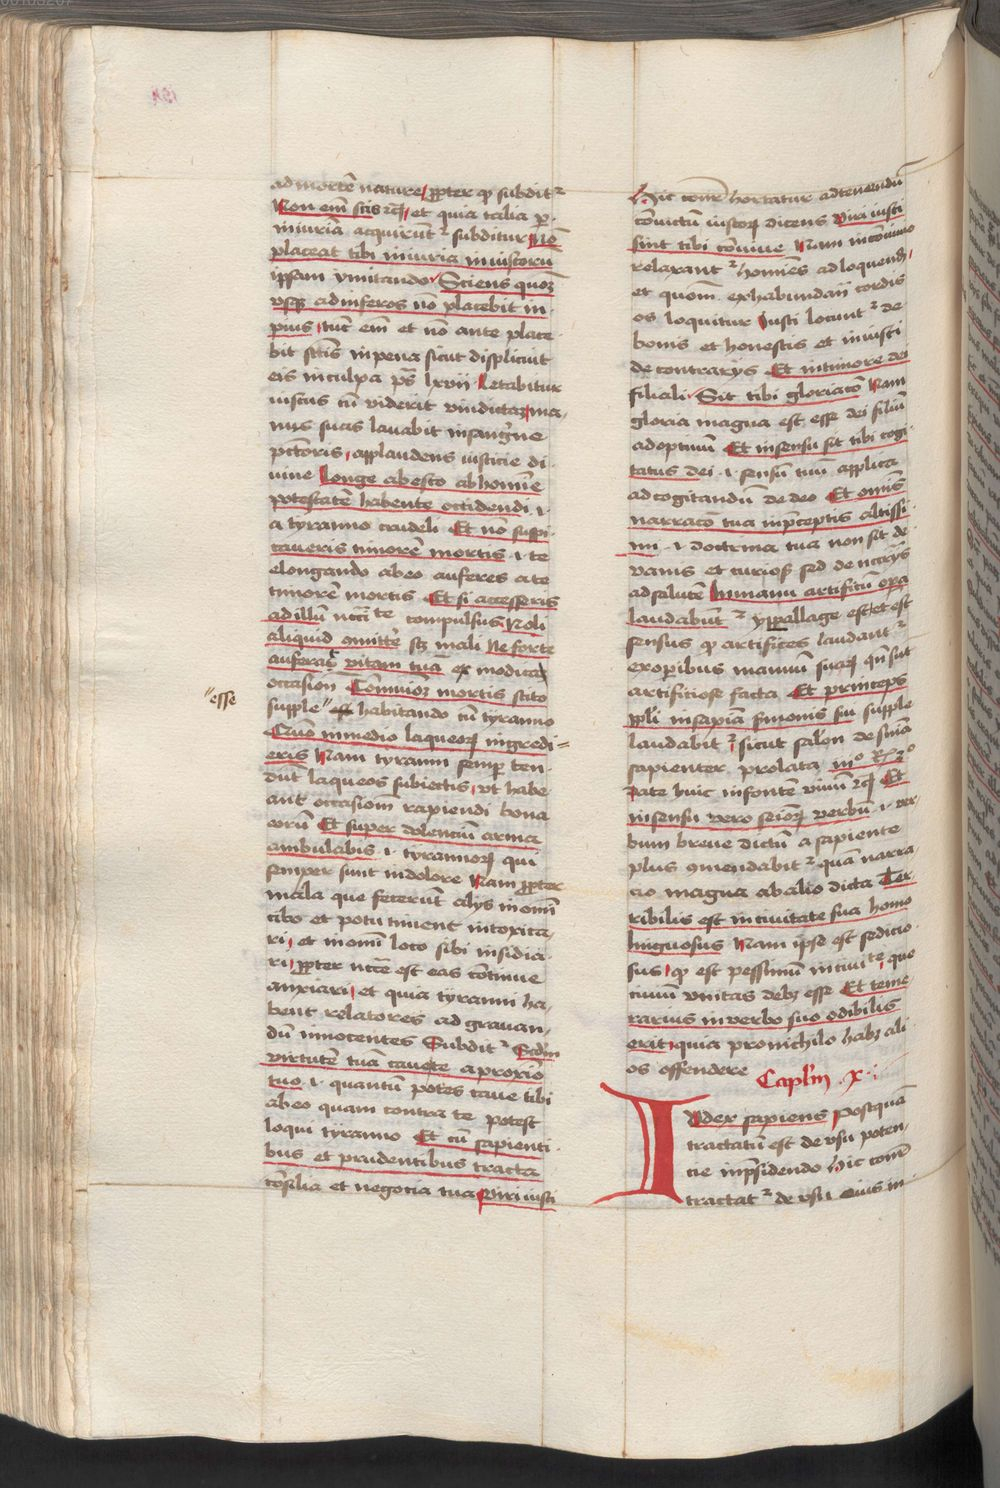 ad mortē nature, ꝓpter qḋ subditᷣ
Non em̄ scis ꝛcꝫ, et quia talia ꝑ
iniuriā acquirūtᷣ subditur Nō
placeat tibi iniuria iniustorū
ipsam ymitando. Sciens quoꝫ
vsqꝫ ad inferos nō placebit im
pius, tūc em̄ et nō ante place
bit sctīs in pena sicut displicuit
eis in culpa pš lxvii Letabitur
iustus cū viderit vindictaꝫ, ma
nus suas lavabit in sangwine
pctōris, applaudens iusticie di
vine Longe abesto ab homīe
potestatē habente occidendi .i.
a tyranno crudeli Et nō suspi
caveris timorē mortis .i. te
elongando ab eo auferes a te
timorē mortis Et si accesseris
ad illū nctī te compulsus Noli
aliquid ōmittē sꝫ mali Ne forte
auferat vitam tuā ex modica
occasiōn Cōmunioꝫ mortis scito
supple habitando cū tyranno
esse
Qm̄ in medio laqueoꝝ ingredi=
eris Nam tyranni semꝑ ten
dūt laqueos subiectis, vt habe
ant occasiom̄ rapiendi bona
eorū Et super dolenciū arma
ambulabis .i. tyrannoꝝ qui
semper sunt in dolore Nam ꝓpter
mala que fecerūt alijs in om̄i
cibo et potu timent intoxica
ri, et in om̄i loco sibi insidia
ri, ꝓpter nctē est eas cōtinue
anxiari, et quia tyranni ha
bent relatores ad gravan
dū innocentes Subditᷣ Scdm̄
virtutē tuā cavete a proxīo
tuo .i. quantū potes cave tibi
ab eo quam contra te potest
loqui tyranno Et cū sapienti
bus et prudentibus tracta
cōsilia et negocia tua Viri iusti
Hic cōnr̄ hortatur ad tenendū
cōvictū iustoꝝ dicens Viri iusti
sint tibi cōvive Nam in cōvivio
relaxantᷣ homīes ad loquendꝫ,
et quom̄ ex habundanti cordis
os loquitur Iusti locuntᷣ de
bonis et honestis et iniusti
de contrarijs Et in timore dei
filiali. Sit tibi gloriacō Nam
gloria magna est esse dei filiū
adoptivū Et in sensu sit tibi cogi
tatus dei .i. sensū tuū applica
ad cogitandū de deo Et om̄is
narracō tua in p̄ceptis altissi
mi .i. doctrina tua non sit de
vanis et curiosꝭ sed de nccrijs
ad salutē In manu artificū oꝑa
laudabūtᷣ yppallage est, et est
sensus qḋ artifices laudantᷣ
ex operibus manuū suaꝝ qn̄ sūt
artificiose facta Et princeps
ppl̄i in sapīa sermonis sui supple
laudabitᷣ, sicut salōn de snīa
sapienter prolata iijº Rꝫ 3º
Date huic infantē vivū ꝛcꝫ Et
in sensu vero seīoꝝ verbū .i. ver
bum breve dictū a sapiente
plus ꝯmendabitᷣ quā narra
cio magna ab alio dicta Ter
ribilis est in civitate sua homo
linguosus Nam ipse est sedicio
sus, qḋ est pessimū in civitate, que
civiū vnitas debꝫ esse Et teme
rarius in verbo suo odibilis
erit, quia pro nichilo habꝫ ali
os offendere Caplm̄ .x.
Iudex sapiens Postquā
tractatū est de vsu poten
cie in p̄sidendo Hic cōnr̄
tractatᷣ de vsu eius in